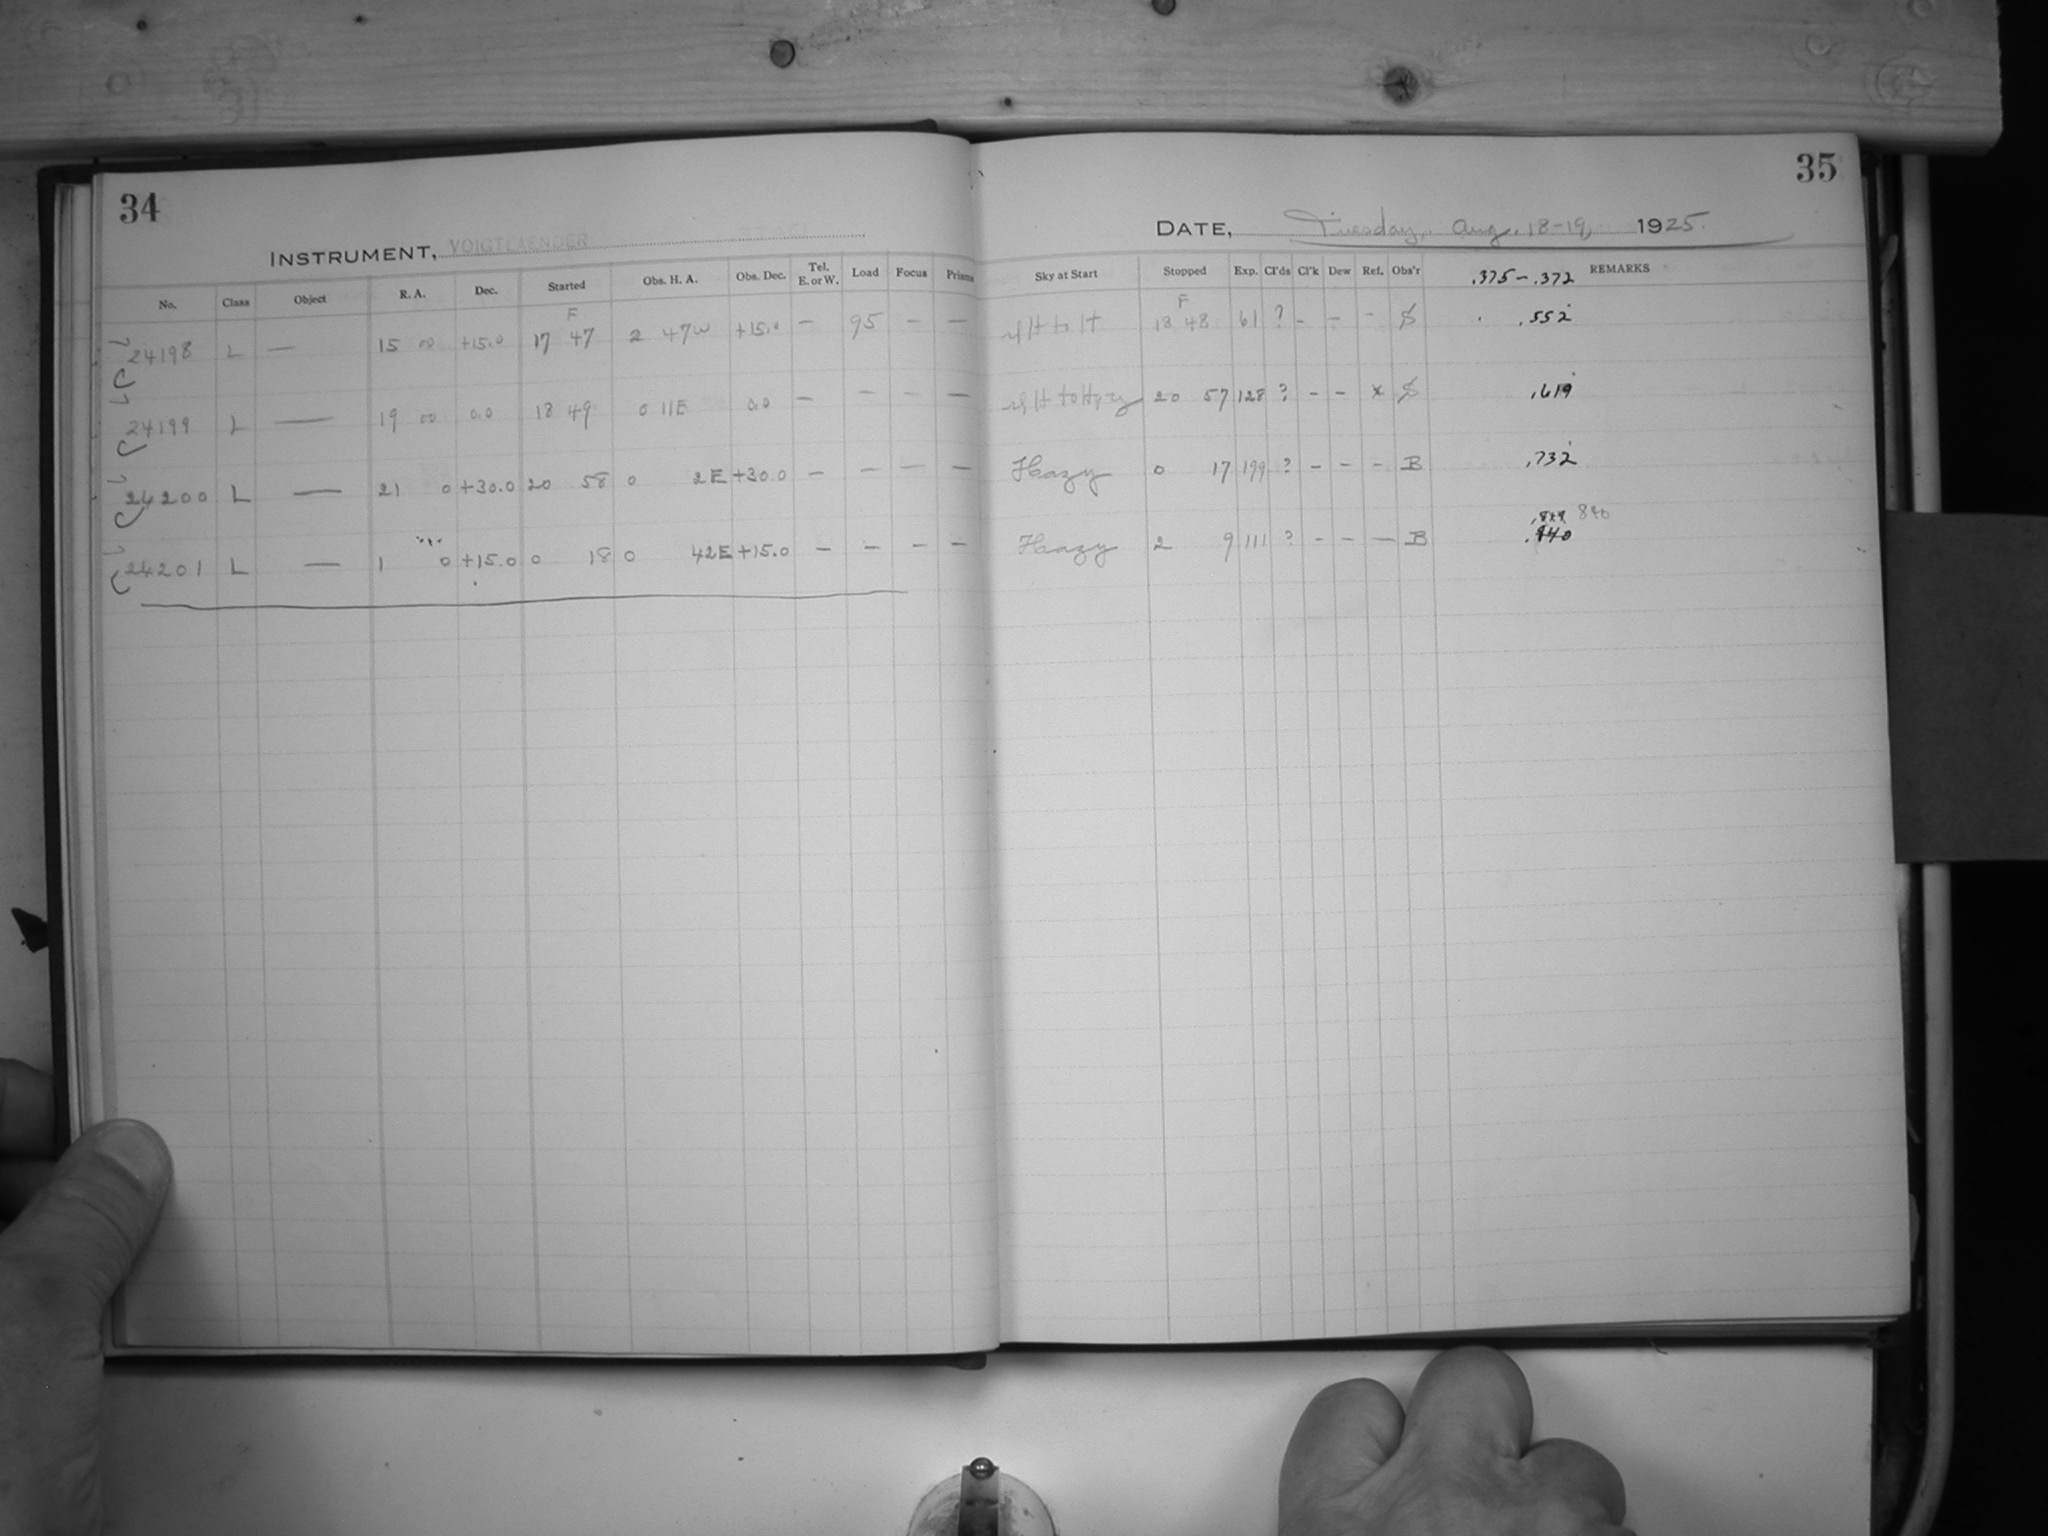 34
INSTRUMENT, VOIGTLAENDER
No. Class Object R. A. Dec. Started Obs. H. A. Obs. Dec. Tel. E. or W. Load Focus Prisms
F
24198 L — 15 00 +15.0 17 47 2 47W +15.0 — 95 — —
24199 L — 19 00 0.0 18 49 0 11E 0.0 — — — —
24200 L — 21 0 +30.0 20 58 0 2E +30.0 — — — —
24201 L — 1 0 +15.0 0 18 0 42E +15.0 — — — —
35
DATE, Tuesday, Aug. 18-19, 1925.
Sky at Start Stopped Exp. Cl'ds Cl'k Dew Ref. Obs'r .375 — .372 REMARKS
F
lt to lt 18 48 61 ? - - - S .552
lt to Hazy 20 57 128 ? - - x S .619
Hazy 0 17 199 ? - - - B .732
840
Hazy 2 9 111 ? - - — B .940